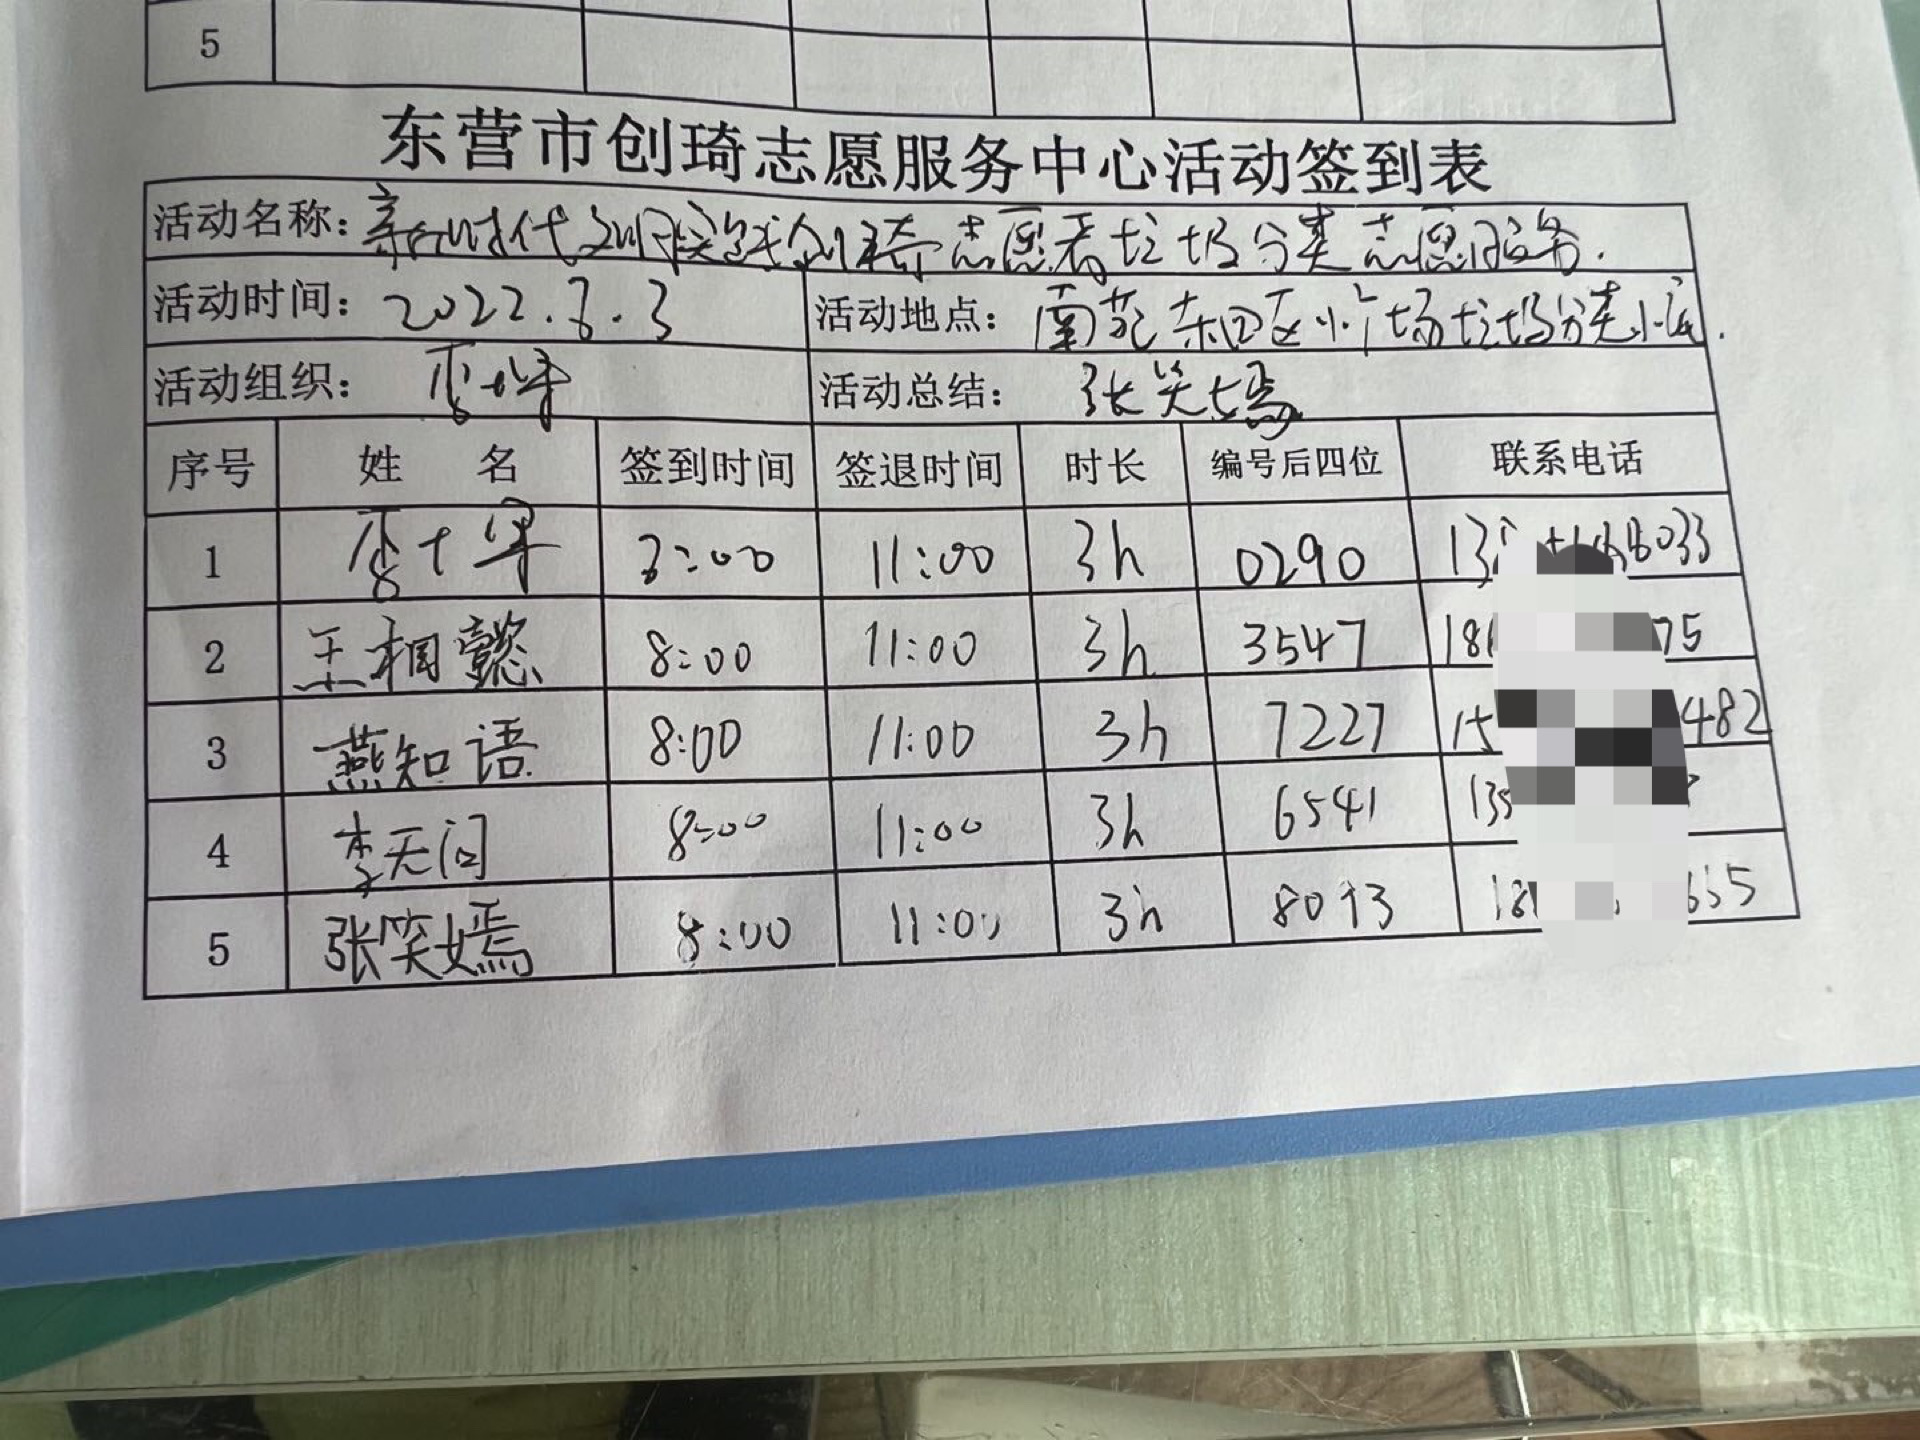 5
东营市创琦志愿服务中心活动签到表
活动名称：新时代文明实践创琦志愿者垃圾分类志愿服务.
活动时间：2022.8.3 活动地点：南苑 区小广场垃圾分类小屋.
活动组织： 活动总结：张笑嫣
序号 姓 名 签到时间 签退时间 时长 编号后四位 联系电话
1 8:00 11:00 3h 0290 13 8033
2 王桐懿 8:00 11:00 3h 3547 18 75
3 燕知语 8:00 11:00 3h 7227 15 482
4 李天问 8:00 11:00 3h 6541 135
5 张笑嫣 8:00 11:00 3h 18